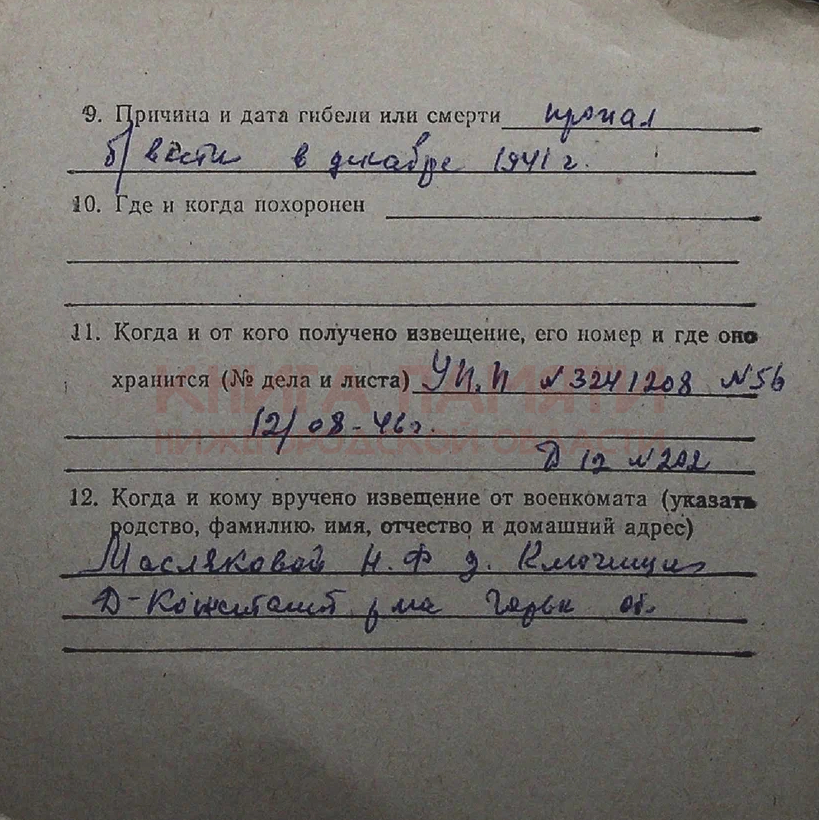 9. Причина и дата гибели или смерти пропал
б/ вести в декабре 1941 г.
10. Где и когда похоронен
11. Когда и от кого получено извещение, его номер и где оно
КНИГА ПАМЯТИ
хранится (№ дела и листа) УП.П N 3241208 N 56
НИЖЕГОРОДСКОЙ ОБЛАСТИ
12/08-46г.
Д 12 N 202
12. Когда и кому вручено извещение от военкомата (указать
родство, фамилию, имя, отчество и домашний адрес)
Масляковой Н. Ф д.
Д-Константи р-на Горьк об.